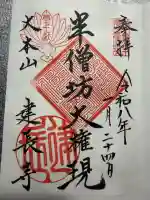 奉拝
令和八年
一月二十四日
半僧坊大権現
大本山
建長寺